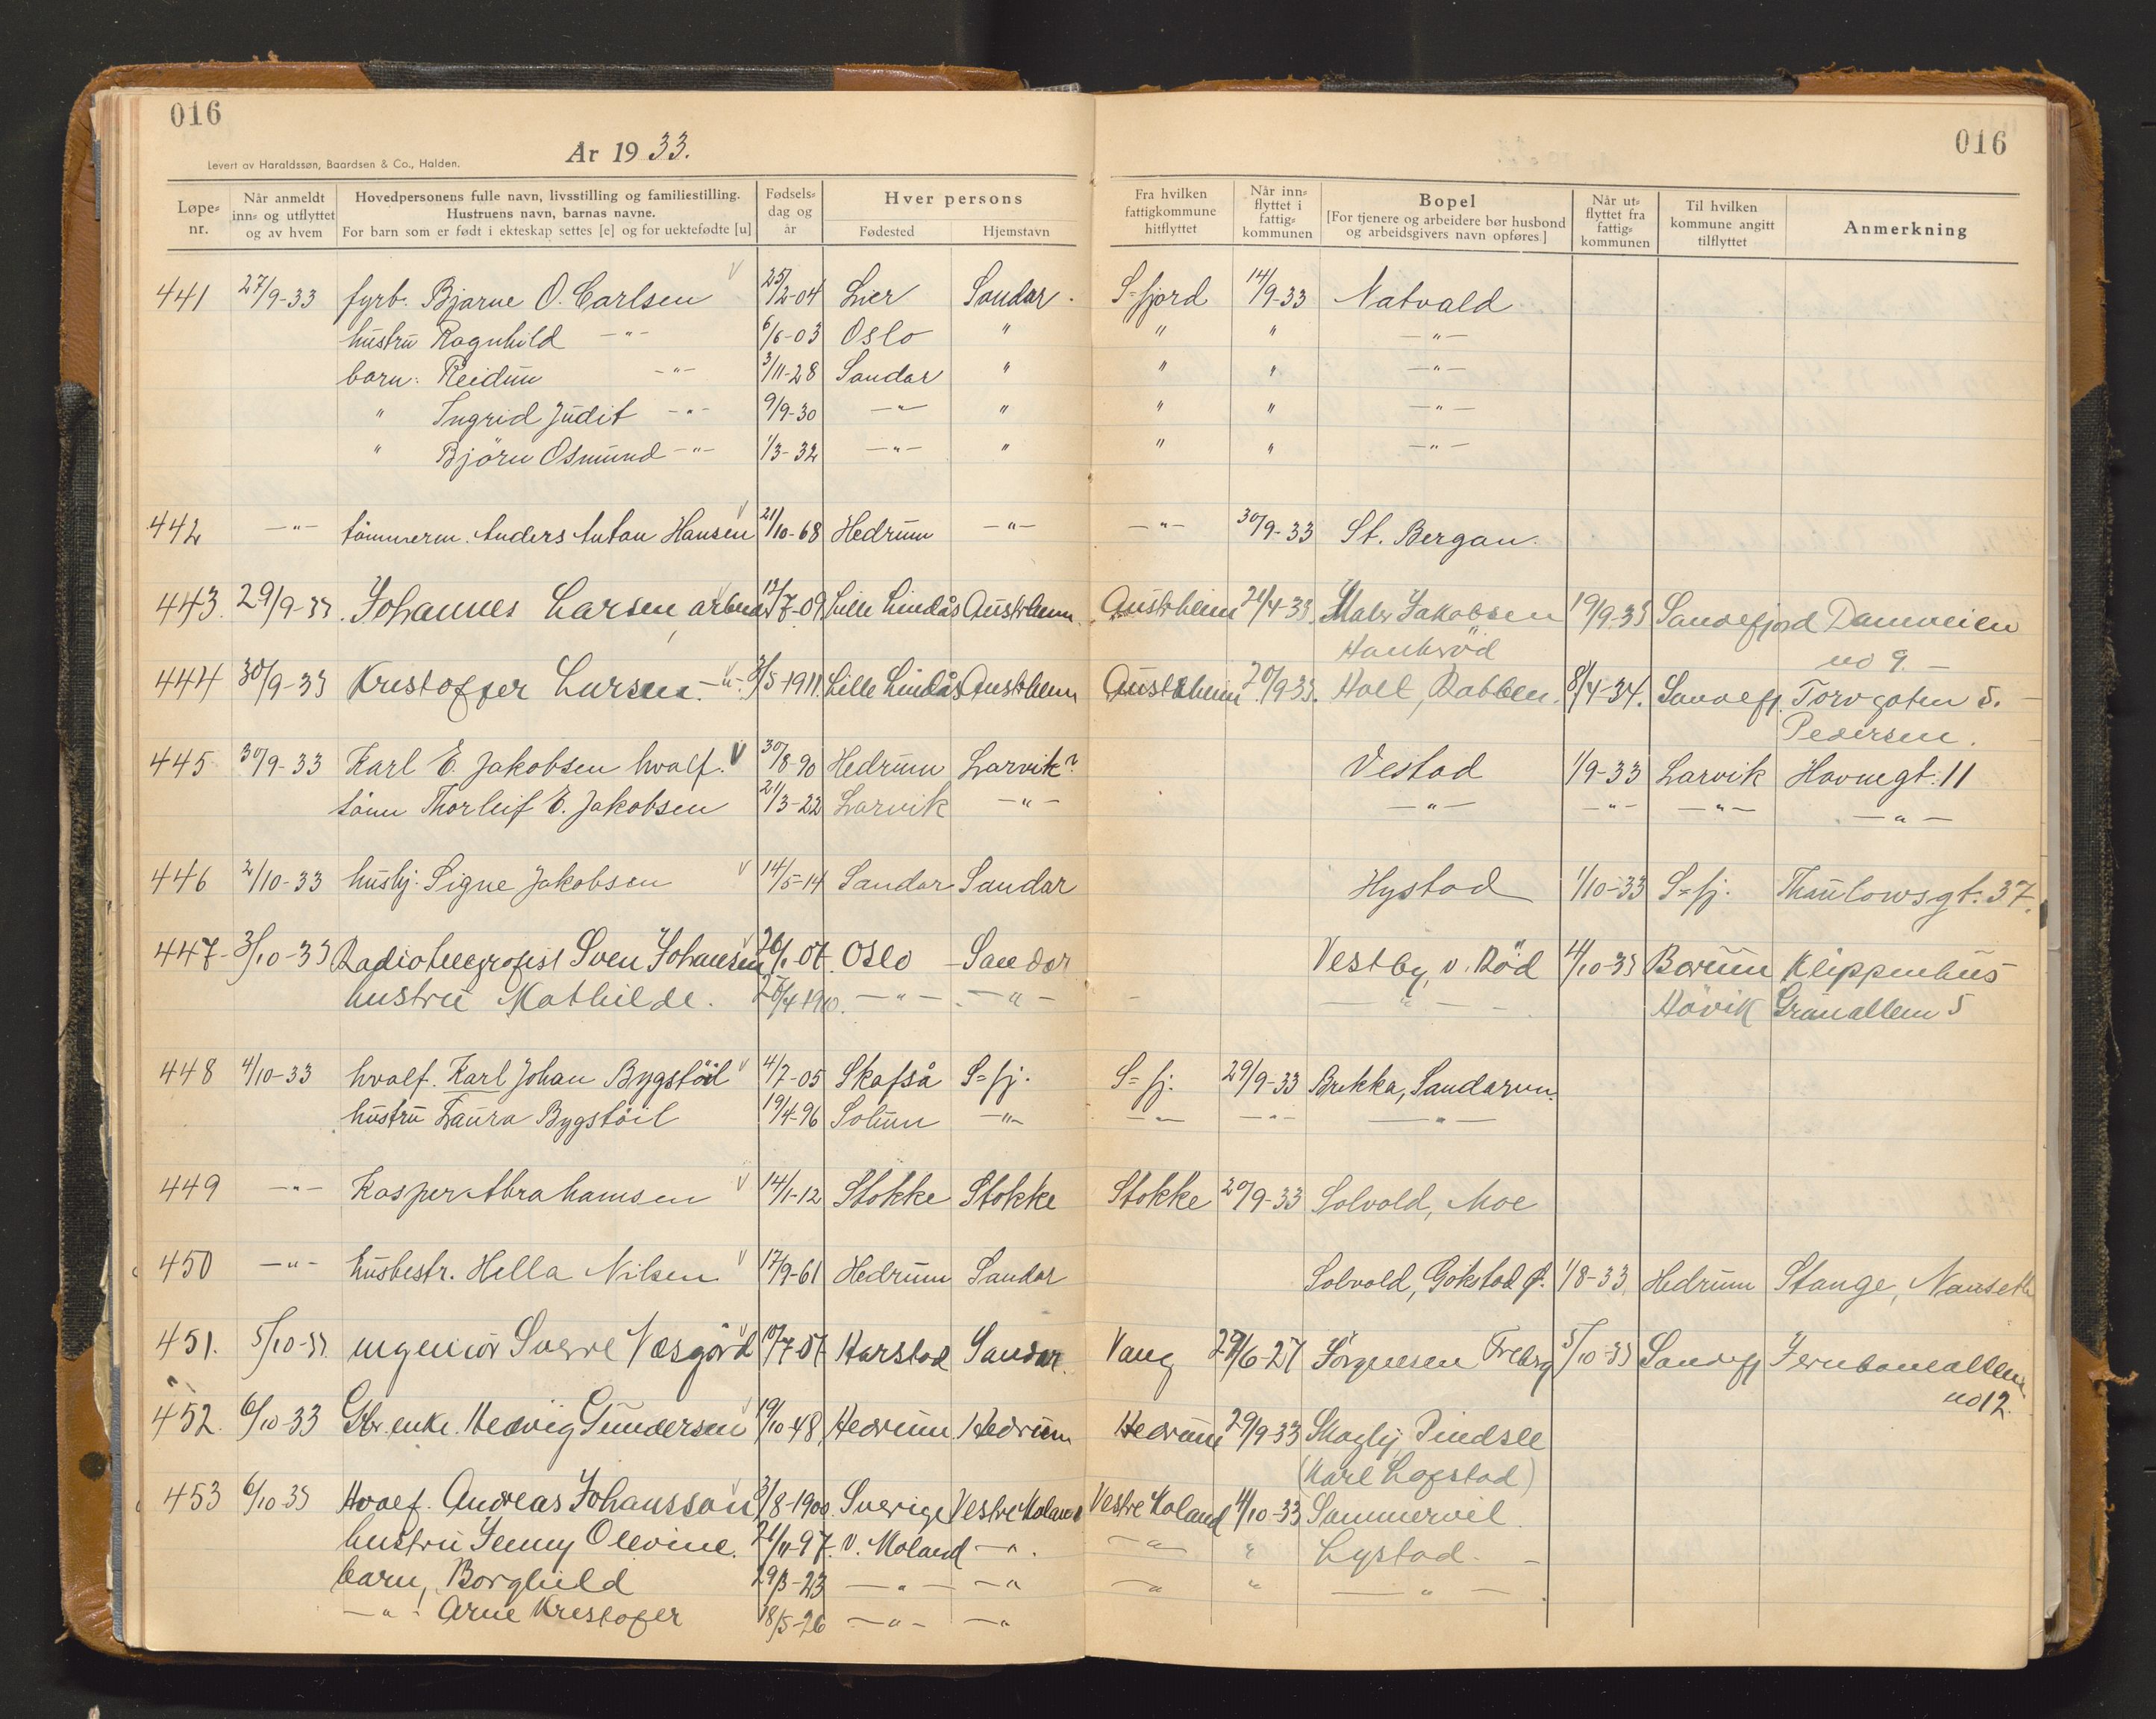 016
016
Levert av Haraldssøn, Baardsen & Co., Halden.
År 1933.
Løpe-nr. Når anmeldt inn- og utflyttet og av hvem Hovedpersonens fulle navn, livsstilling og familiestilling. Hustruens navn, barnas navne. For barn som er født i ekteskap settes [e] og for uektefødte [u] Fødsels-dag og år Hver persons Fødested Hjemstavn Fra hvilken fattigkommune hitflyttet Når inn-flyttet i fattig-kommunen Bopel [For tjenere og arbeidere bør husbond og arbeidsgivers navn opføres] Når ut-flyttet fra fattig-kommunen Til hvilken kommune angitt tilflyttet Anmerkning
441 27/9-33 fyrb. Bjarne O. Carlsen V 25/2-04 Lier Sandar. S-fjord 14/9-33 Natvald
hustru Ragnhild -"- 6/6-03 Oslo " " " -"-
barn: Reidun -"- 3/11-28 Sandar " " " -"-
" Ingrid Judit -"- 9/9-30 -"- " " " -"-
" Björn Osmund -"- 1/3-32 -"- " " " -"-
442 -"- tömmerm. Anders Anton Hansen V 21/10-68 Hedrum -"- -"- 30/9-33 St. Bergan.
443. 29/9-33. Johannes Larsen, arbeider 13/7-09 Lille Lindås Austrheim. Austrheim 20/4-33. Halv Jakobsen 19/9-33 Sandefjord Damveien
Haukröd no 9. -
444 30/9-33 Kristoffer Larsen. -"- 3/5-1911. Lille Lindås Austrheim Austrheim 20/9-33. Hall, Rabben. 8/4-34. Sandefj. Torvgaten 5.
Pedersen.
445 30/9-33 Karl E. Jakobsen hvalf. V 30/8-90 Hedrum Larvik? Vestad 1/9-33 Larvik Havnegt. 11
sönn Thorleif E. Jakobsen 21/3-22 Larvik -"- -"- -"- -"- -"-
446 2/10-33 hushj. Signe Jakobsen V 14/5-14 Sandar Sandar Hystad 1/10-33 S-fj. Thaulowsgt. 37.
447- 3/10-33 Radiotelegrafist Sven Johansen V 26/1-07. Oslo -Sandar Vestby, v. Röd 4/10-33 Bærum Klippenhus
hustru Mathilde. 25/4-1910. -"- -"- -"- Hövik Granalleen 5
448 4/10-33 hvalf. Karl Johan Bygstöil V 4/7-05 Skafså S-fj. S-fj. 29/9-33 Brekka, Sandarvn.
hustru Laura Bygstöil 19/4-96 Solum -"- -"- -"- -"-
449 -"- Kasper Abrahamsen V 14/1-12 Stokke Stokke Stokke 20/9-33 Solvold, Moe
450 -"- husbestr. Hella Nilsen V 17/9-61 Hedrum Sandar Solvold, Gokstad Ø. 1/8-33 Hedrum Stange, Nanseth
451. 5/10-33 ingeniör Sverre Næsgård V 10/7-07 Harstad Sandar. Vang 29/6-27 Jörgensen Freberg 5/10-33 Sandefj Jernbanealleen
no 12.
452. 6/10-33 enke. Hedvig Gundersen V 19/10-48, Hedrum. Hedrum Hedrum 29/9-33 Skogly, Pindsle
(Karl Lofstad)
453 6/10-33 Hvalf. Andreas Johansson V 3/8-1900. Sverige Vestre Moland Vestre Moland 4/10-33 Sommervil.
hustru Jenny Olevine. 21/11-97. V. Moland -"- -"- " Lystad. -
barn, Borghild 29/3-23 -"- -"- -"- " -"-
-"- Arne Kristofer 18/5-26 -"- -"-